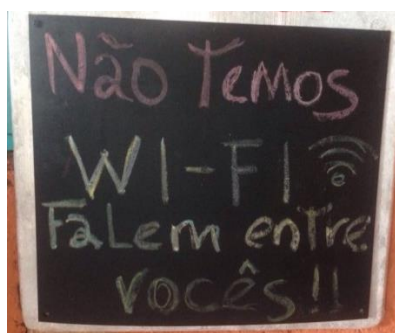 Não Temos
WI-FI
FaLem entre
vocês!!